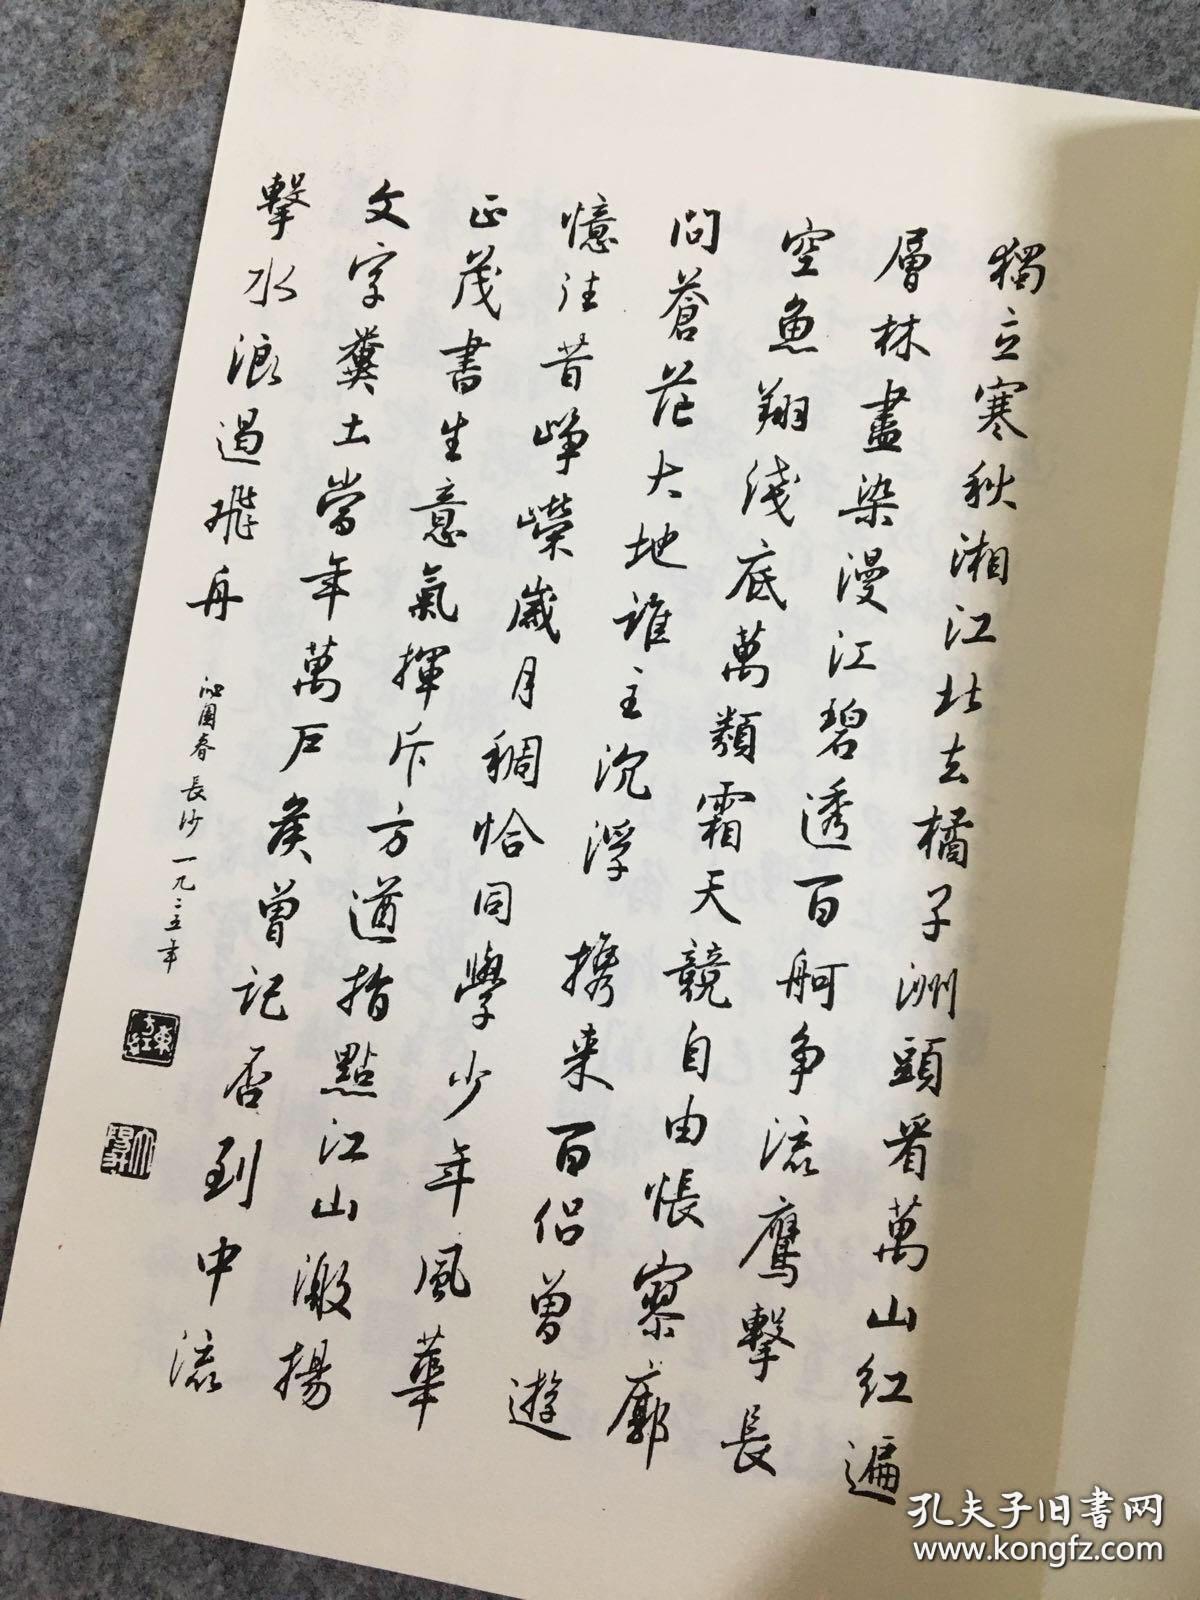 獨立寒秋湘江北去橘子洲頭看萬山红遍
層林盡染漫江碧透百舸争流鷹擊長
空魚翔淺底萬類霜天競自由悵寥廓
問蒼茫大地誰主沉浮 携来百侣曾遊
憶往昔崢嶸歲月稠恰同學少年風華
正茂書生意氣揮斥方遒指點江山激揚
文字糞土當年萬户侯曾記否到中流
擊水浪遏飛舟 沁園春 長沙 一九二五年
東方紅
孔夫子旧书网
www.kongfz.com